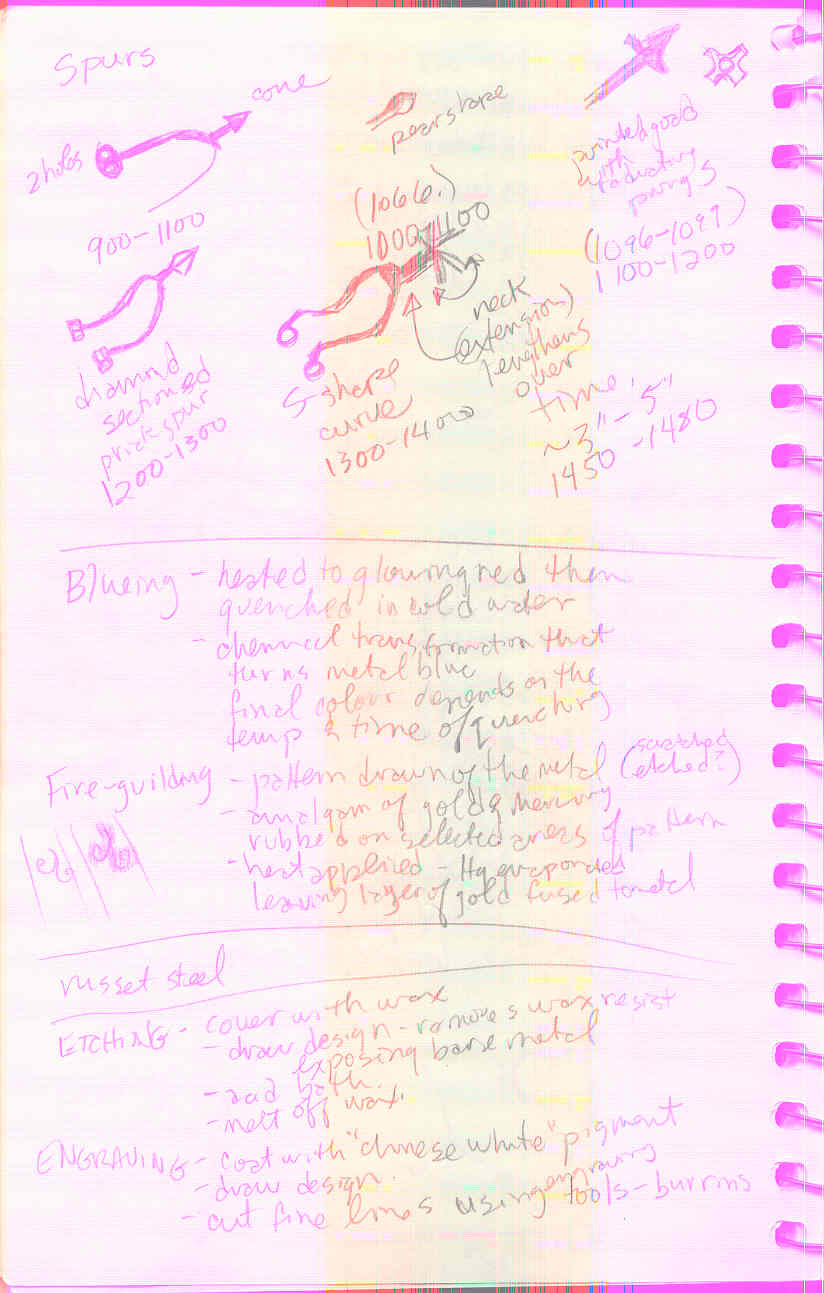 Spurs
cone
2 holes
900-1100
pear shape
(1066.)
1000-1100
pointed goad
with
radiating
prongs
(1096-1099)
1100-1200
diamond
sectioned
prick spur
1200-1300
S-shape
curve
1300-1400
neck
(extension)
lengthens
over
time.
~3"-5"
1450-1480
Blueing - heated to glowing red then
quenched in cold water
- chemical transformation that
turns metal blue
final colour depends on the
temp & time of quenching
Fire-guilding - pattern drawn of the metal (scratched
etched?)
- amalgam of gold & mercury
rubbed on selected areas of pattern
- heat applied - Hg evaporated
leaving layer of gold fused to metal
russet steel
ETCHING - cover with wax
- draw design - removes wax resist
exposing bare metal
- acid bath.
- melt off wax.
ENGRAVING - coat with "chinese white" pigment
- draw design.
- cut fine lines using engraving
tools - burrins